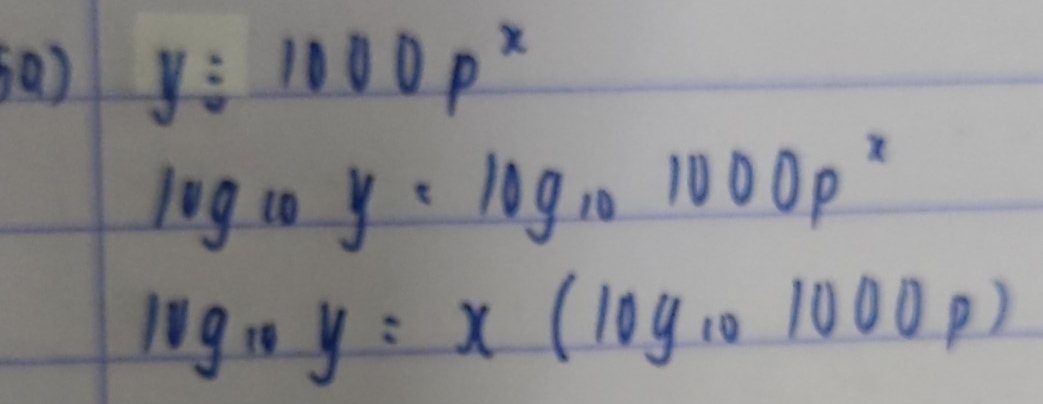 5a) y = 1000p^x
log₁₀ y = log₁₀ 1000p^x
log₁₀ y = x (log₁₀ 1000p)